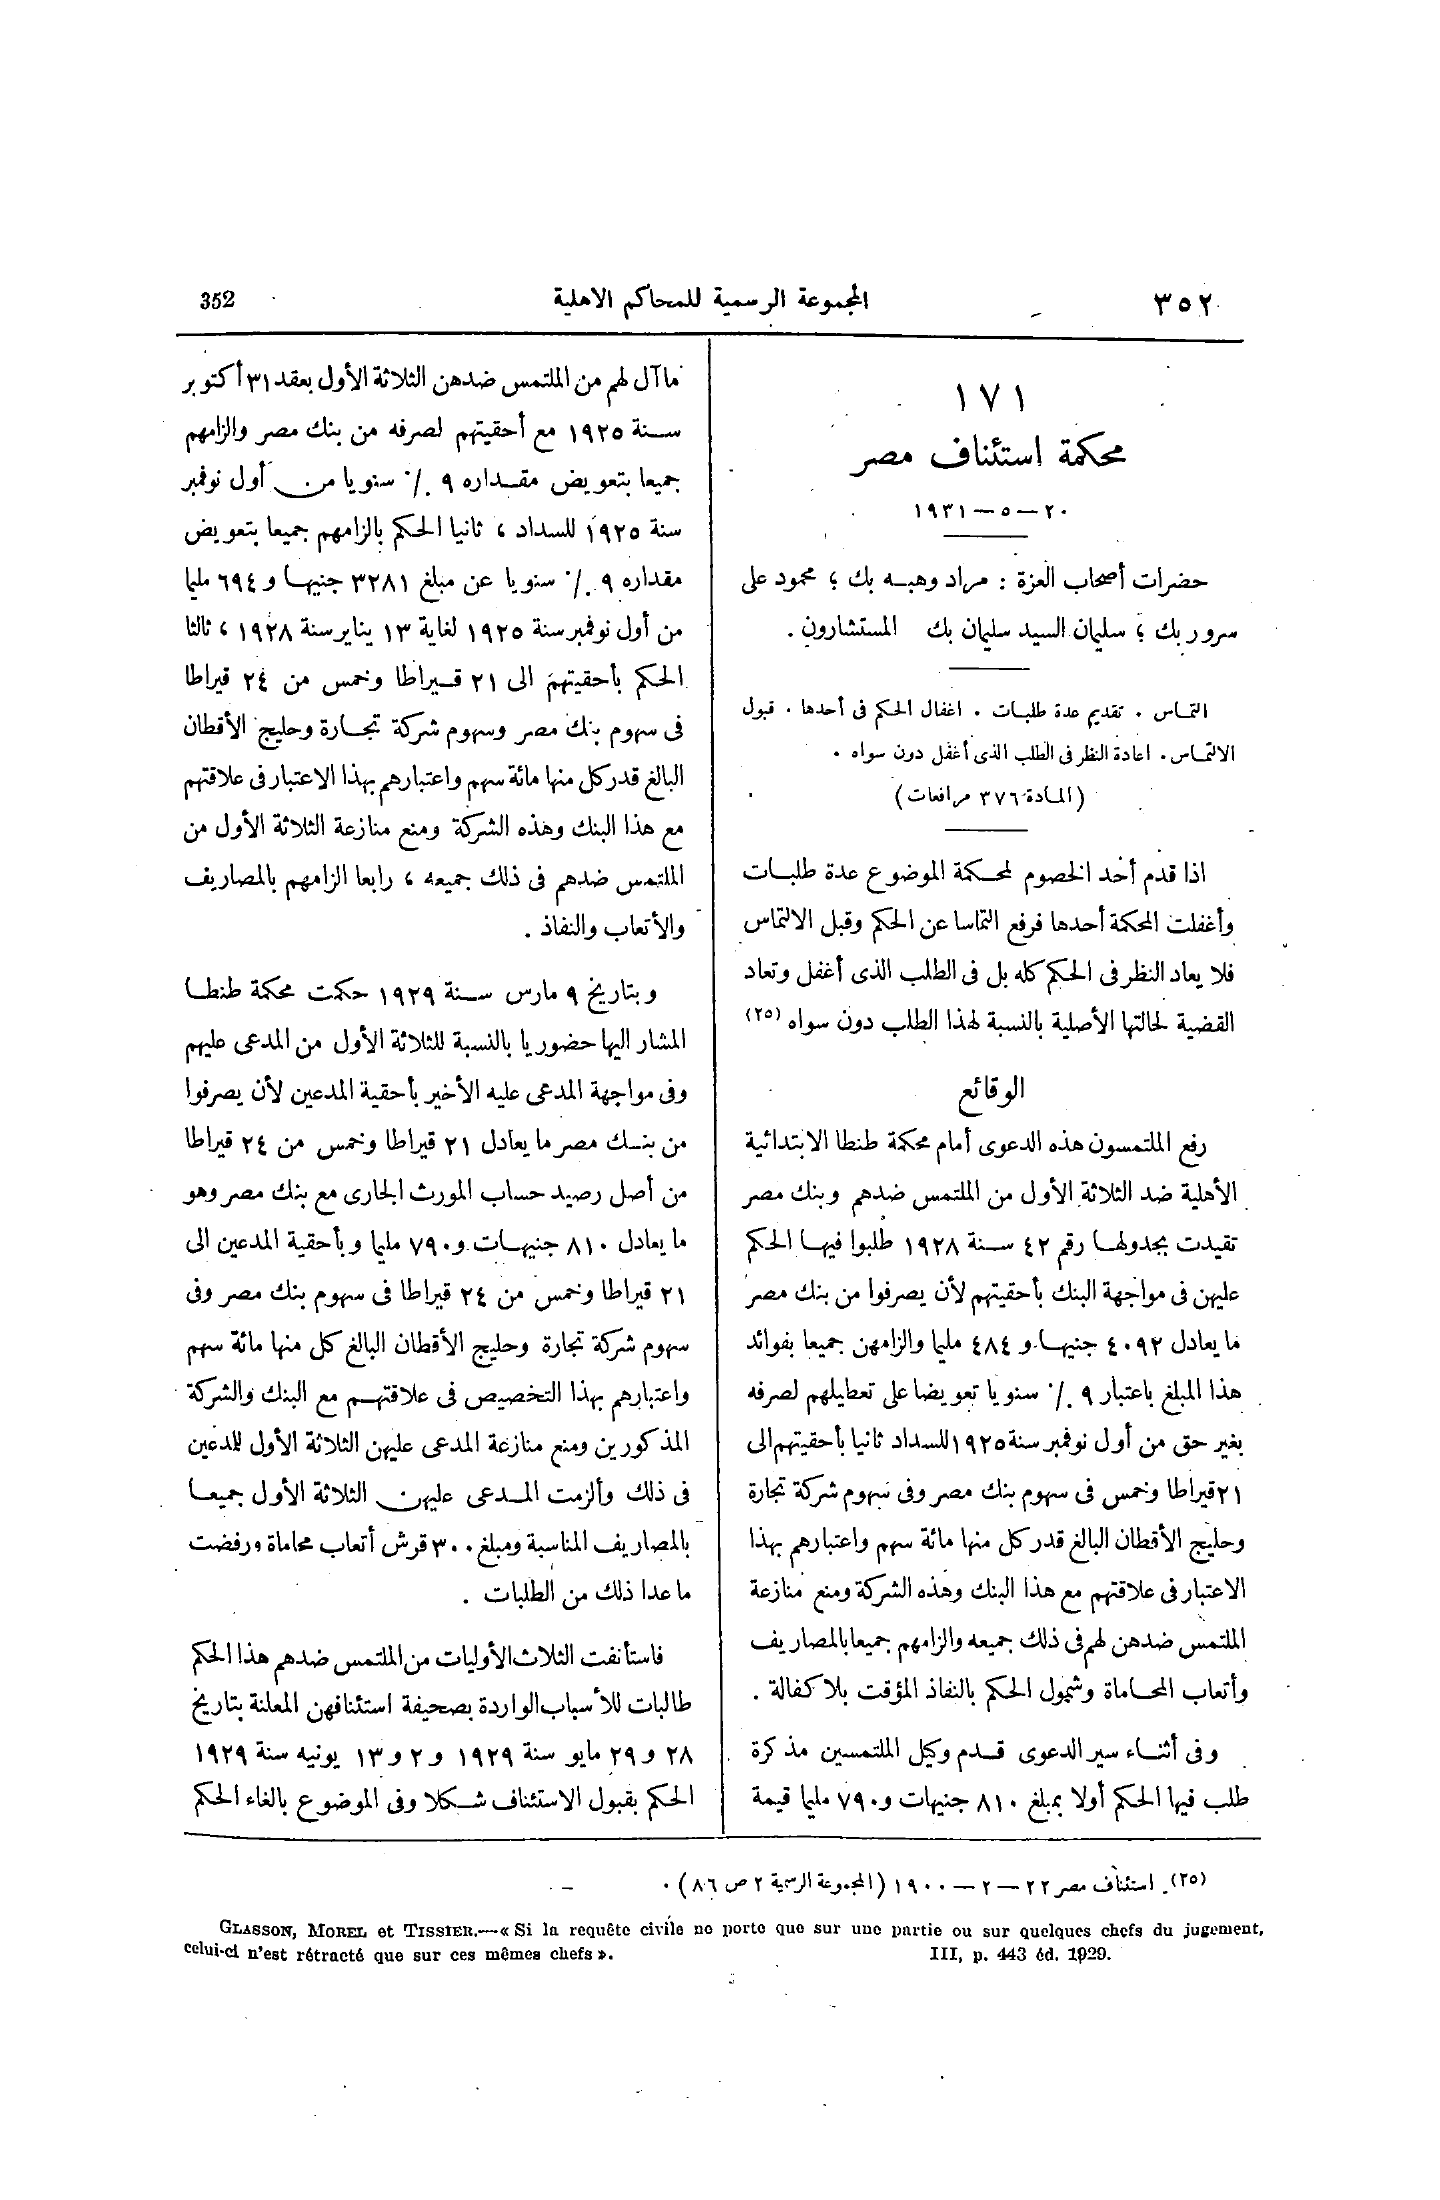 ٣٥٢ المجموعة الرسمية للمحاكم الاهلية 352
١٧١
محكمة استئناف مصر
٢٠ — ٥ — ١٩٣١
حضرات أصحاب العزة : مراد وهبه بك ؛ محمود على
سرور بك ؛ سليمان السيد سليمان بك المستشارون .
التماس . تقديم عدة طلبات . اغفال الحكم فى أحدها . قبول
الالتماس . اعادة النظر فى الطلب الذى أغفل دون سواه .
(المادة ٣٧٦ مرافعات)
اذا قدم أحد الخصوم لمحكمة الموضوع عدة طلبات
وأغفلت المحكمة أحدها فرفع التماسا عن الحكم وقبل الالتماس
فلا يعاد النظر فى الحكم كله بل فى الطلب الذى أغفل وتعاد
القضية لحالتها الأصلية بالنسبة لهذا الطلب دون سواه (٢٥)
الوقائع
رفع الملتمسون هذه الدعوى أمام محكمة طنطا الابتدائية
الأهلية ضد الثلاثة الأول من الملتمس ضدهم وبنك مصر
تقيدت بجدولها رقم ٤٢ سنة ١٩٢٨ طلبوا فيها الحكم
عليهن فى مواجهة البنك بأحقيتهم لأن يصرفوا من بنك مصر
ما يعادل ٤٠٩٢ جنيها و ٤٨٤ مليما والزامهن جميعا بفوائد
هذا المبلغ باعتبار ٩ ./٠ سنويا تعويضا على تعطيلهم لصرفه
بغير حق من أول نوفمبر سنة ١٩٢٥ للسداد ثانيا بأحقيتهم الى
٢١ قيراطا وخمس فى سهوم بنك مصر وفى سهوم شركة تجارة
وحليج الأقطان البالغ قدر كل منها مائة سهم واعتبارهم بهذا
الاعتبار فى علاقتهم مع هذا البنك وهذه الشركة ومنع منازعة
الملتمس ضدهن لهم فى ذلك جميعه والزامهم جميعا بالمصاريف
وأتعاب المحاماة وشمول الحكم بالنفاذ المؤقت بلا كفالة .
وفى أثناء سير الدعوى قدم وكيل الملتمسين مذكرة
طلب فيها الحكم أولا بمبلغ ٨١٠ جنيهات و ٧٩٠ مليما قيمة
ما آل لهم من الملتمس ضدهن الثلاثة الأول بعقد ٣١ أكتوبر
سنة ١٩٢٥ مع أحقيتهم لصرفه من بنك مصر والزامهم
جميعا بتعويض مقداره ٩ ./٠ سنويا من أول نوفمبر
سنة ١٩٢٥ للسداد ، ثانيا الحكم بالزامهم جميعا بتعويض
مقداره ٩ ./٠ سنويا عن مبلغ ٣٢٨١ جنيها و ٦٩٤ مليما
من أول نوفمبر سنة ١٩٢٥ لغاية ١٣ يناير سنة ١٩٢٨ ، ثالثا
الحكم بأحقيتهم الى ٢١ قيراطا وخمس من ٢٤ قيراطا
فى سهوم بنك مصر وسهوم شركة تجارة وحليج الأقطان
البالغ قدر كل منها مائة سهم واعتبارهم بهذا الاعتبار فى علاقتهم
مع هذا البنك وهذه الشركة ومنع منازعة الثلاثة الأول من
الملتمس ضدهم فى ذلك جميعه ، رابعا الزامهم بالمصاريف
والأتعاب والنفاذ .
وبتاريخ ٩ مارس سنة ١٩٢٩ حكمت محكمة طنطا
المشار اليها حضوريا بالنسبة للثلاثة الأول من المدعى عليهم
وفى مواجهة المدعى عليه الأخير بأحقية المدعين لأن يصرفوا
من بنك مصر ما يعادل ٢١ قيراطا وخمس من ٢٤ قيراطا
من أصل رصيد حساب المورث الجارى مع بنك مصر وهو
ما يعادل ٨١٠ جنيهات و ٧٩٠ مليما وبأحقية المدعين الى
٢١ قيراطا وخمس من ٢٤ قيراطا فى سهوم بنك مصر وفى
سهوم شركة تجارة وحليج الأقطان البالغ كل منها مائة سهم
واعتبارهم بهذا التخصيص فى علاقتهم مع البنك والشركة
المذكورين ومنع منازعة المدعى عليهن الثلاثة الأول للمدعين
فى ذلك وألزمت المدعى عليهن الثلاثة الأول جميعا
بالمصاريف المناسبة ومبلغ ٣٠٠ قرش أتعاب محاماة ورفضت
ما عدا ذلك من الطلبات .
فاستأنفت الثلاث الأوليات من الملتمس ضدهم هذا الحكم
طالبات للأسباب الواردة بصحيفة استئنافهن المعلنة بتاريخ
٢٨ و ٢٩ مايو سنة ١٩٢٩ و ٢ و ١٣ يونيه سنة ١٩٢٩
الحكم بقبول الاستئناف شكلا وفى الموضوع بالغاء الحكم
(٢٥) استئناف مصر ٢٢ — ٢ — ١٩٠٠ (المجموعة الرسمية ٢ ص ٨٦) .
GLASSON, MOREL et TISSIER.—« Si la requête civile ne porte que sur une partie ou sur quelques chefs du jugement,
celui-ci n'est rétracté que sur ces mêmes chefs ». III, p. 443 éd. 1929.